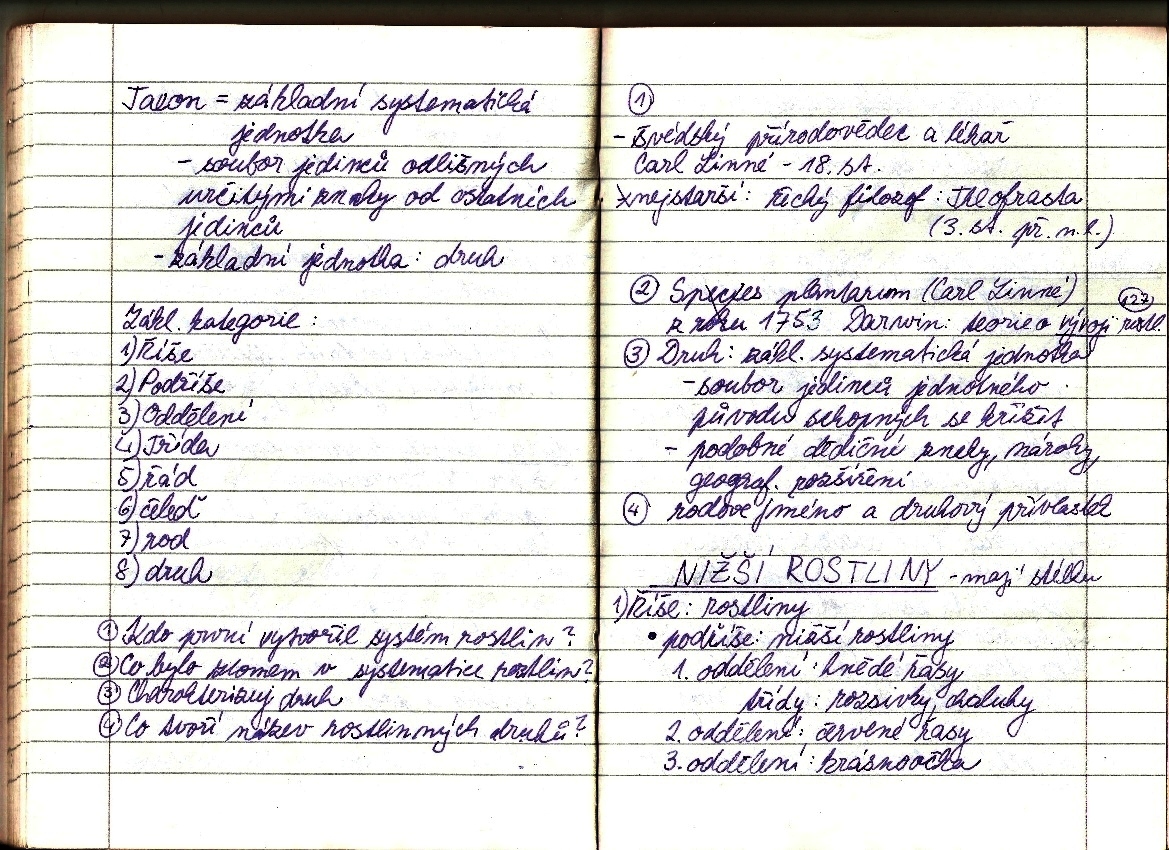 Taxon = základní systematická
jednotka
- soubor jedinců odlišných
určitými znaky od ostatních
jedinců
- základní jednotka: druh
Zákl. kategorie:
1) Říše
2) Podříše
3) Oddělení
4) Třída
5) řád
6) čeleď
7) rod
8) druh
① Kdo první vytvořil systém rostlin?
② Co bylo zlomem v systematice rostlin?
③ Charakterizuj druh
④ Co tvoří název rostlinných druhů?
①
- švédský přírodovědec a lékař
Carl Linné - 18. st.
x nejstarší: řecký filozof: Theofrasta
(3. st. př. n. l.)
② Species plantarum (Carl Linné)
z roku 1753 Darwin: teorie o vývoji rostl.
127
③ Druh: zákl. systematická jednotka
- soubor jedinců jednotného
původu schopných se křížit
- podobné dědičné znaky, nároky,
geograf. rozšíření
④ rodové jméno a druhový přívlastek
NIŽŠÍ ROSTLINY - mají stélku
1) Říše: rostliny
• podříše: nižší rostliny
1. oddělení: hnědé řasy
třídy: rozsivky, chaluhy
2. oddělení: červené řasy
3. oddělení: krásnoočka